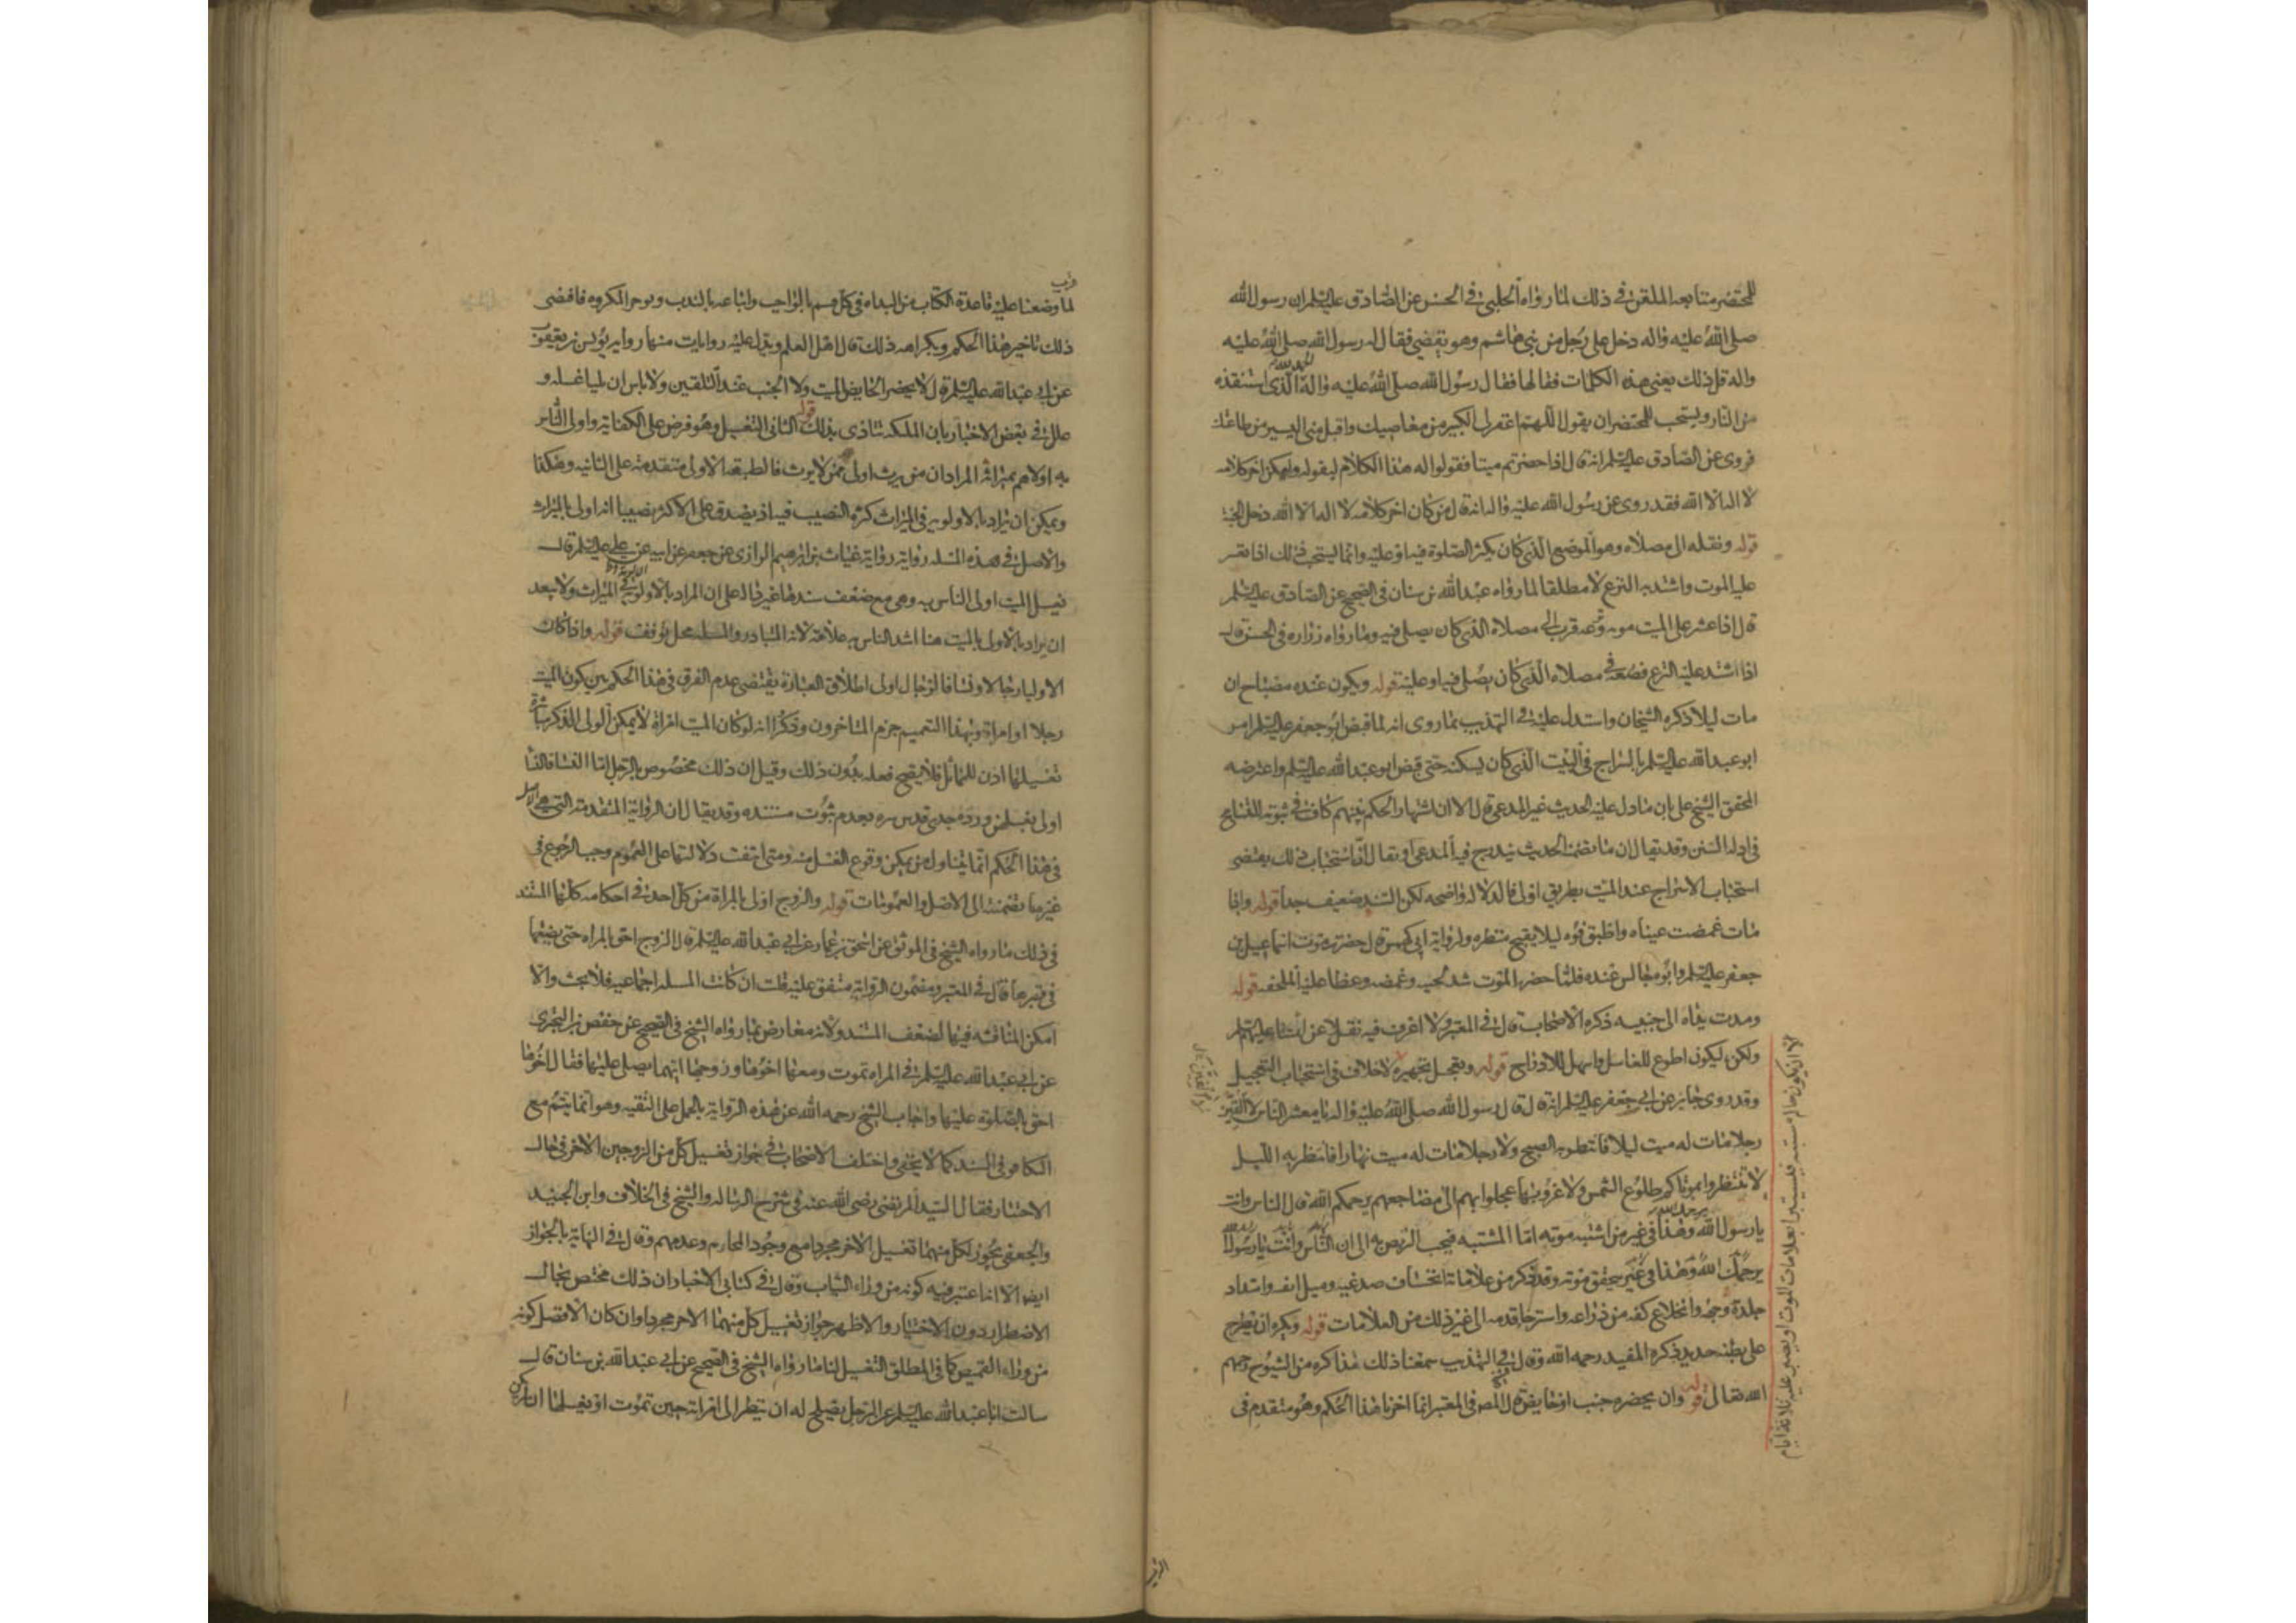 للمحتضر متابعه الملقن في ذلك لما رواه الحلبي في الحسن عن الصادق عليه السلم ان رسول الله
صلى الله عليه واله دخل على رجل من بني هاشم وهو يقضي فقال له رسول الله صلى الله عليه
واله قل ذلك يعني هذه الكلمات فقالها فقال رسول الله صلى الله عليه واله الحمد لله الذي استنقذه
من النار ويستحب للمحتضر ان يقول اللهم اغفر لي الكبير من معاصيك واقبل مني اليسير من طاعتك
فروي عن الصادق عليه السلم انه قال اذا حضرتم ميتا فقولوا له هذا الكلام ليقوله وليكن اخر كلامه
لا اله الا الله فقد روي عن رسول الله عليه واله انه قال من كان اخر كلامه لا اله الا الله دخل الجنة
قوله ونقله الى مصلاه وهو الموضع الذي كان يكثر الصلوة فيه او عليه وانما يستحب ذلك اذا تعسر
عليه الموت واشتد به النزع لا مطلقا لما رواه عبد الله بن سنان في الصحيح عن الصادق عليه السلم
قال اذا عسر على الميت موته ونزعه قرب الى مصلاه الذي كان يصلي فيه وما رواه زراره في الحسن قال
اذا اشتد عليه النزع فضعه في مصلاه الذي كان يصلي فيه او عليه قوله ويكون عنده مصباح ان
مات ليلا ذكره الشيخان واستدل عليه في التهذيب بما روي انه لما قبض ابو جعفر عليه السلم امر
ابو عبد الله عليه السلم بالسراج في البيت الذي كان يسكنه حتى قبض ابو عبد الله عليه السلم واعترضه
المحقق الشيخ علي بان ما دل عليه الحديث غير المدعى قال الا ان اشتهار الحكم بينهم كاف في ثبوته للتسامح
في ادلة السنن وقد يقال ان ما تضمنه الحديث يندرج فيه المدعى او يقال ان استحباب ذلك يقتضي
استحباب الاسراج عند الميت بطريق اولى فالدلاله واضحه لكن السند ضعيف جدا قوله واذا
مات غمضت عيناه واطبق فوه ليلا يقبح منظره ولرواية ابي كهمس قال حضرت موت اسماعيل بن
جعفر عليه السلم وابوه جالس عنده فلما حضره الموت شد لحييه وغمضه وغطا عليه الملحفه قوله
ومدت يداه الى جنبيه ذكره الاصحاب قال في المعتبر ولا اعرف فيه نقلا عن ائمتنا عليهم السلم
ولكن ليكون اطوع للغاسل واسهل للادراج قوله ويعجل تجهيزه لا خلاف في استحباب التعجيل
وقد روى جابر عن ابي جعفر عليه السلم انه قال قال رسول الله صلى الله عليه واله يا معشر الناس لا الفين
رجلا مات له ميت ليلا فانتظر به الصبح ولا رجلا مات له ميت نهارا فانتظر به الليل
لا تنتظروا بموتاكم طلوع الشمس ولا غروبها عجلوا بهم الى مضاجعهم يرحمكم الله قال الناس وانت
يا رسول الله وهذا في غير من اشتبه موته اما المشتبه فيجب التربص به الى ان الناس وانت يا رسول الله
يرحمك الله وهذا في غير يتحقق موته وقد ذكر من علاماته انخساف صدغيه وميل انفه وامتداد
جلدة وجهه وانخلاع كفه من ذراعه واسترخا قدمه الى غير ذلك من العلامات قوله ويكره ان يطرح
على بطنه حديد ذكره المفيد رحمه الله وقال في التهذيب سمعنا ذلك مذاكرة من الشيوخ رحمهم
الله تعالى قوله وان يحضره جنب او حايض قال المص في المعتبر انما اخرنا هذا الحكم وهو متقدم في
الا ان يكون حاله مشتبه فيستبرا بعلامات الموت او يصبر عليه ثلاثة ايام
لما وضعنا عليه قاعدة الكتاب من البداه في كل قسم بالواجب واتباعه بالندب وتوخر المكروه فاقتضى
ذلك تاخير هذا الحكم وبكراهه ذلك قال اهل العلم ويدل عليه روايات منها رواية يونس بن يعقوب
عن ابي عبد الله عليه السلم قال لا يحضر الحايض الميت ولا الجنب عند التلقين ولا باس ان يليا غسله و
علل في بعض الاخبار بان الملئكه تتاذى بذلك قوله الثاني التغسيل وهو فرض على الكفاية واولى الناس
به اولاهم بميراثه المراد ان من يرث اولى ممن لا يرث فالطبقه الاولى متقدمة على الثانيه وهكذا
ويمكن ان يراد بالاولويه في الميراث كثرة النصيب فيه اذ يصدق على الاكثر نصيبا انه اولى بالميراث
والاصل في هذه المسله رواية غياث بن ابرهيم الرازي عن جعفر عن ابيه عن علي عليه السلم قال
يغسل الميت اولى الناس به وهي مع ضعف سندها غير داله على ان المراد بالاولوية الاولوية في الميراث ولا يبعد
ان يراد بالاولى بالميت هنا اشد الناس به علاقة لانه المتبادر والمسله محل توقف قوله واذا كان
الاوليا رجالا ونسا فالرجال اولى اطلاق العبارة يقتضي عدم الفرق في هذا الحكم بين كون الميت
رجلا او امراة وبهذا التعميم جزم المتاخرون وذكروا انه لو كان الميت امراة لا يمكن الولي الذكر مباشرة
تغسيلها اذن للمماثل فلا يصح فعله بدون ذلك وقيل ان ذلك مخصوص بالرجل اما النسا فالنسا
اولى بغسلهن ورده جدي قدس سره بعدم ثبوت مستنده وقد يقال ان الرواية المتقدمة التي هي الاصل
في هذا الحكم انما تتناول من يمكن وقوع الغسل منه ومتى انتفت دلالتها على العموم وجب الرجوع في
غير ما تضمنته الى الاصل والعمومات قوله والزوج اولى بالمراة من كل احد في احكامه كلها المستند
في ذلك ما رواه الشيخ في الموثق عن اسحق بن عمار عن ابي عبد الله عليه السلم قال الزوج احق بالمراه حتى يضعها
في قبرها قال في المعتبر ومضمون الرواية متفق عليه قلت ان كانت المسله اجماعيه فلا بحث والا
امكن المناقشه فيها لضعف السند ولانه معارض بما رواه الشيخ في الصحيح عن حفص بن البختري
عن ابي عبد الله عليه السلم في المراه تموت ومعها اخوها وزوجها ايهما يصلي عليها فقال اخوها
احق بالصلوة عليها واجاب الشيخ رحمه الله عن هذه الرواية بالحمل على التقيه وهو انما يتم مع
التكافو في السند كما لا يخفى واختلف الاصحاب في جواز تغسيل كل من الزوجين الاخر في حال
الاختيار فقال السيد المرتضى رضي الله عنه في شرح الرساله والشيخ في الخلاف وابن الجنيد
والجعفي يجوز لكل منهما تغسيل الاخر مجردا مع وجود المحارم وعدمهم وقال في النهاية بالجواز
ايضا الا انه اعتبر فيه كونه من وراء الثياب وقال في كتابي الاخبار ان ذلك مختص بحال
الاضطرار دون الاختيار والاظهر جواز تغسيل كل منهما الاخر مجردا وان كان الافضل كونه
من وراء القميص كما في المطلق التغسيل لنا ما رواه الشيخ في الصحيح عن ابي عبد الله بن سنان قال
سالت ابا عبد الله عليه السلم عن الرجل يصلح له ان ينظر الى امراته حين تموت او يغسلها ان لم يكن